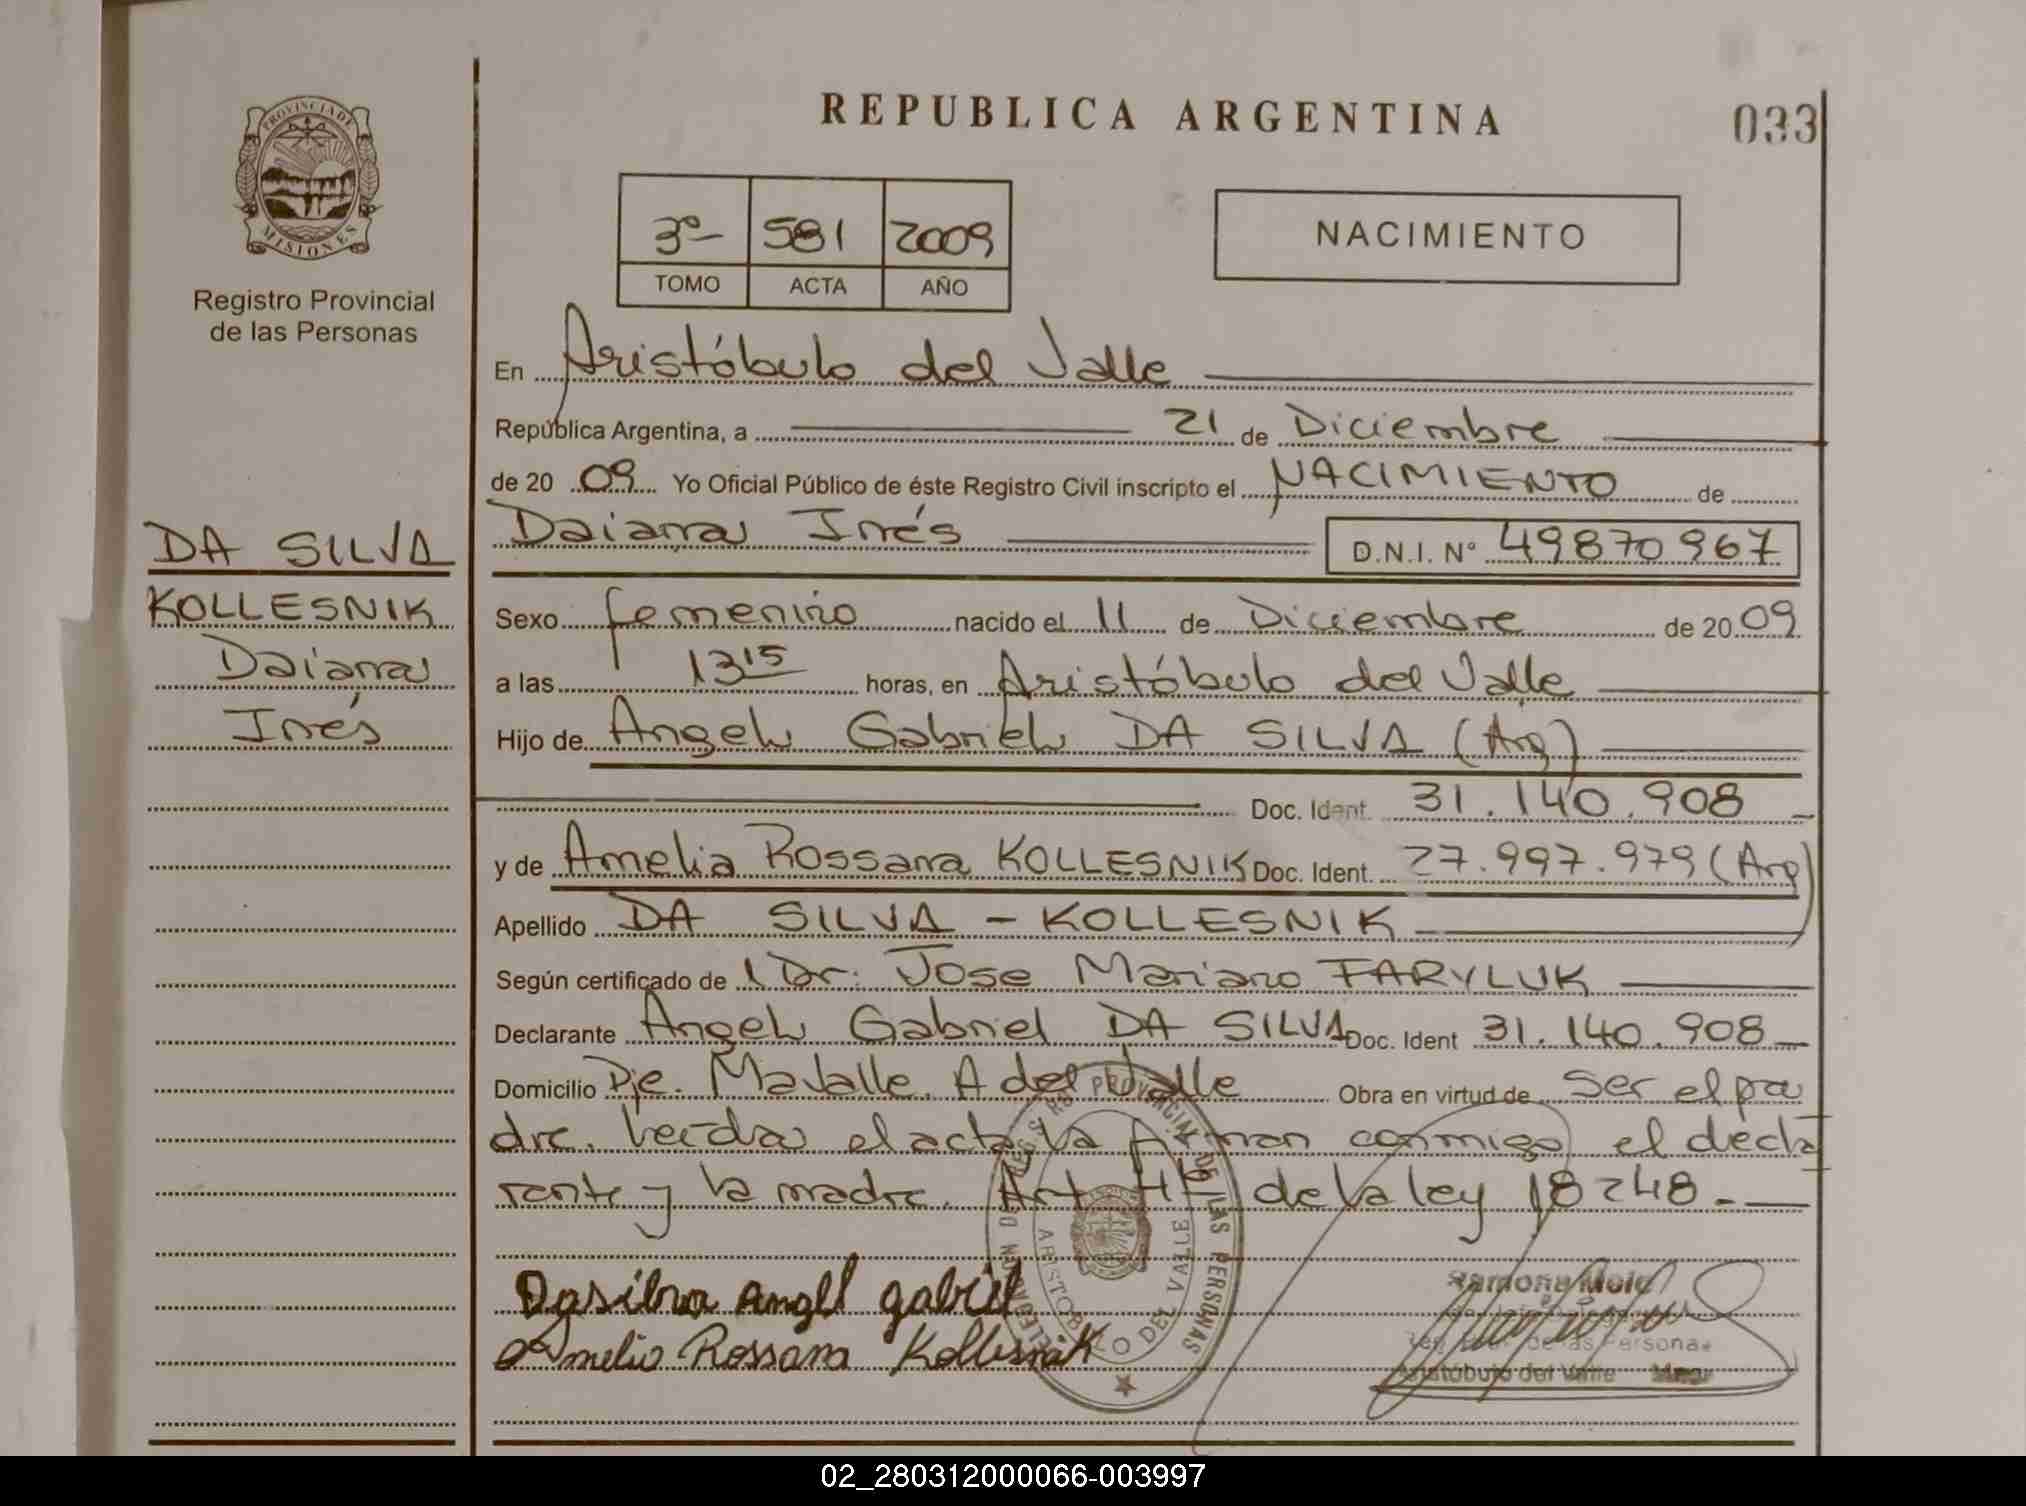 REPUBLICA ARGENTINA
033
PROVINCIA DE MISIONES
Registro Provincial
de las Personas
3º 581 2009
TOMO ACTA AÑO
NACIMIENTO
En Aristóbulo del Valle
República Argentina, a 21 de Diciembre
de 20 09 Yo Oficial Público de éste Registro Civil inscripto el NACIMIENTO de
Daiana Inés D.N.I. Nº 49870967
DA SILVA
KOLLESNIK
Daiana
Inés
Sexo femenino nacido el 11 de Diciembre de 20 09
a las 13 15 horas, en Aristóbulo del Valle
Hijo de Angel Gabriel DA SILVA (Arg)
Doc. Ident. 31.140.908
y de Amelia Rossana KOLLESNIK Doc. Ident. 27.997.979 (Arg)
Apellido DA SILVA - KOLLESNIK
Según certificado de Dr. Jose Mariano FARYLUK
Declarante Angel Gabriel DA SILVA Doc. Ident 31.140.908
Domicilio Pje. Mavalle. A del Valle Obra en virtud de ser el pa
dre. Leída el acta la firman conmigo el decla
rante y la madre. Art 4º de la ley 18248.-
Dasilva Angel gabriel
Amelia Rossana Kollesnik
REGISTRO PROVINCIAL DE LAS PERSONAS
DELEGACION
ARISTOBULO DEL VALLE
Ramona
de las Personas
Aristóbulo del Valle
02_280312000066-003997